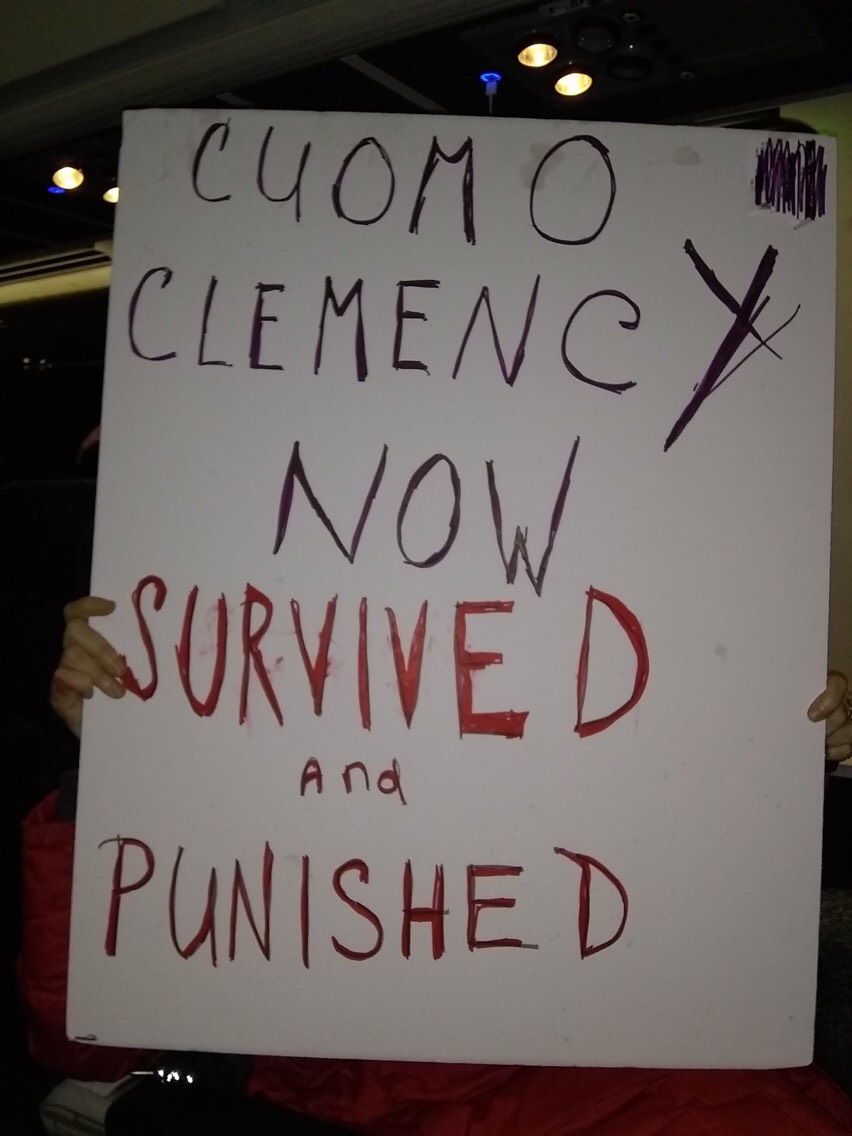 CUOMO
CLEMENCY
NOW
SURVIVED
And
PUNISHED